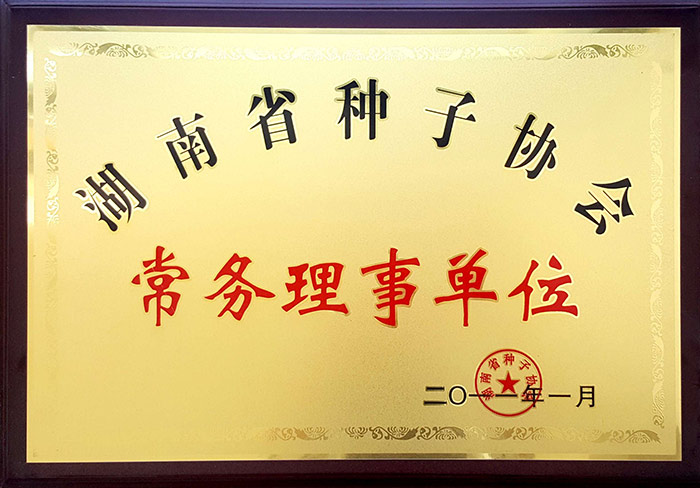 湖南省种子协会
常务理事单位
湖南省种子协会
二〇一一年一月